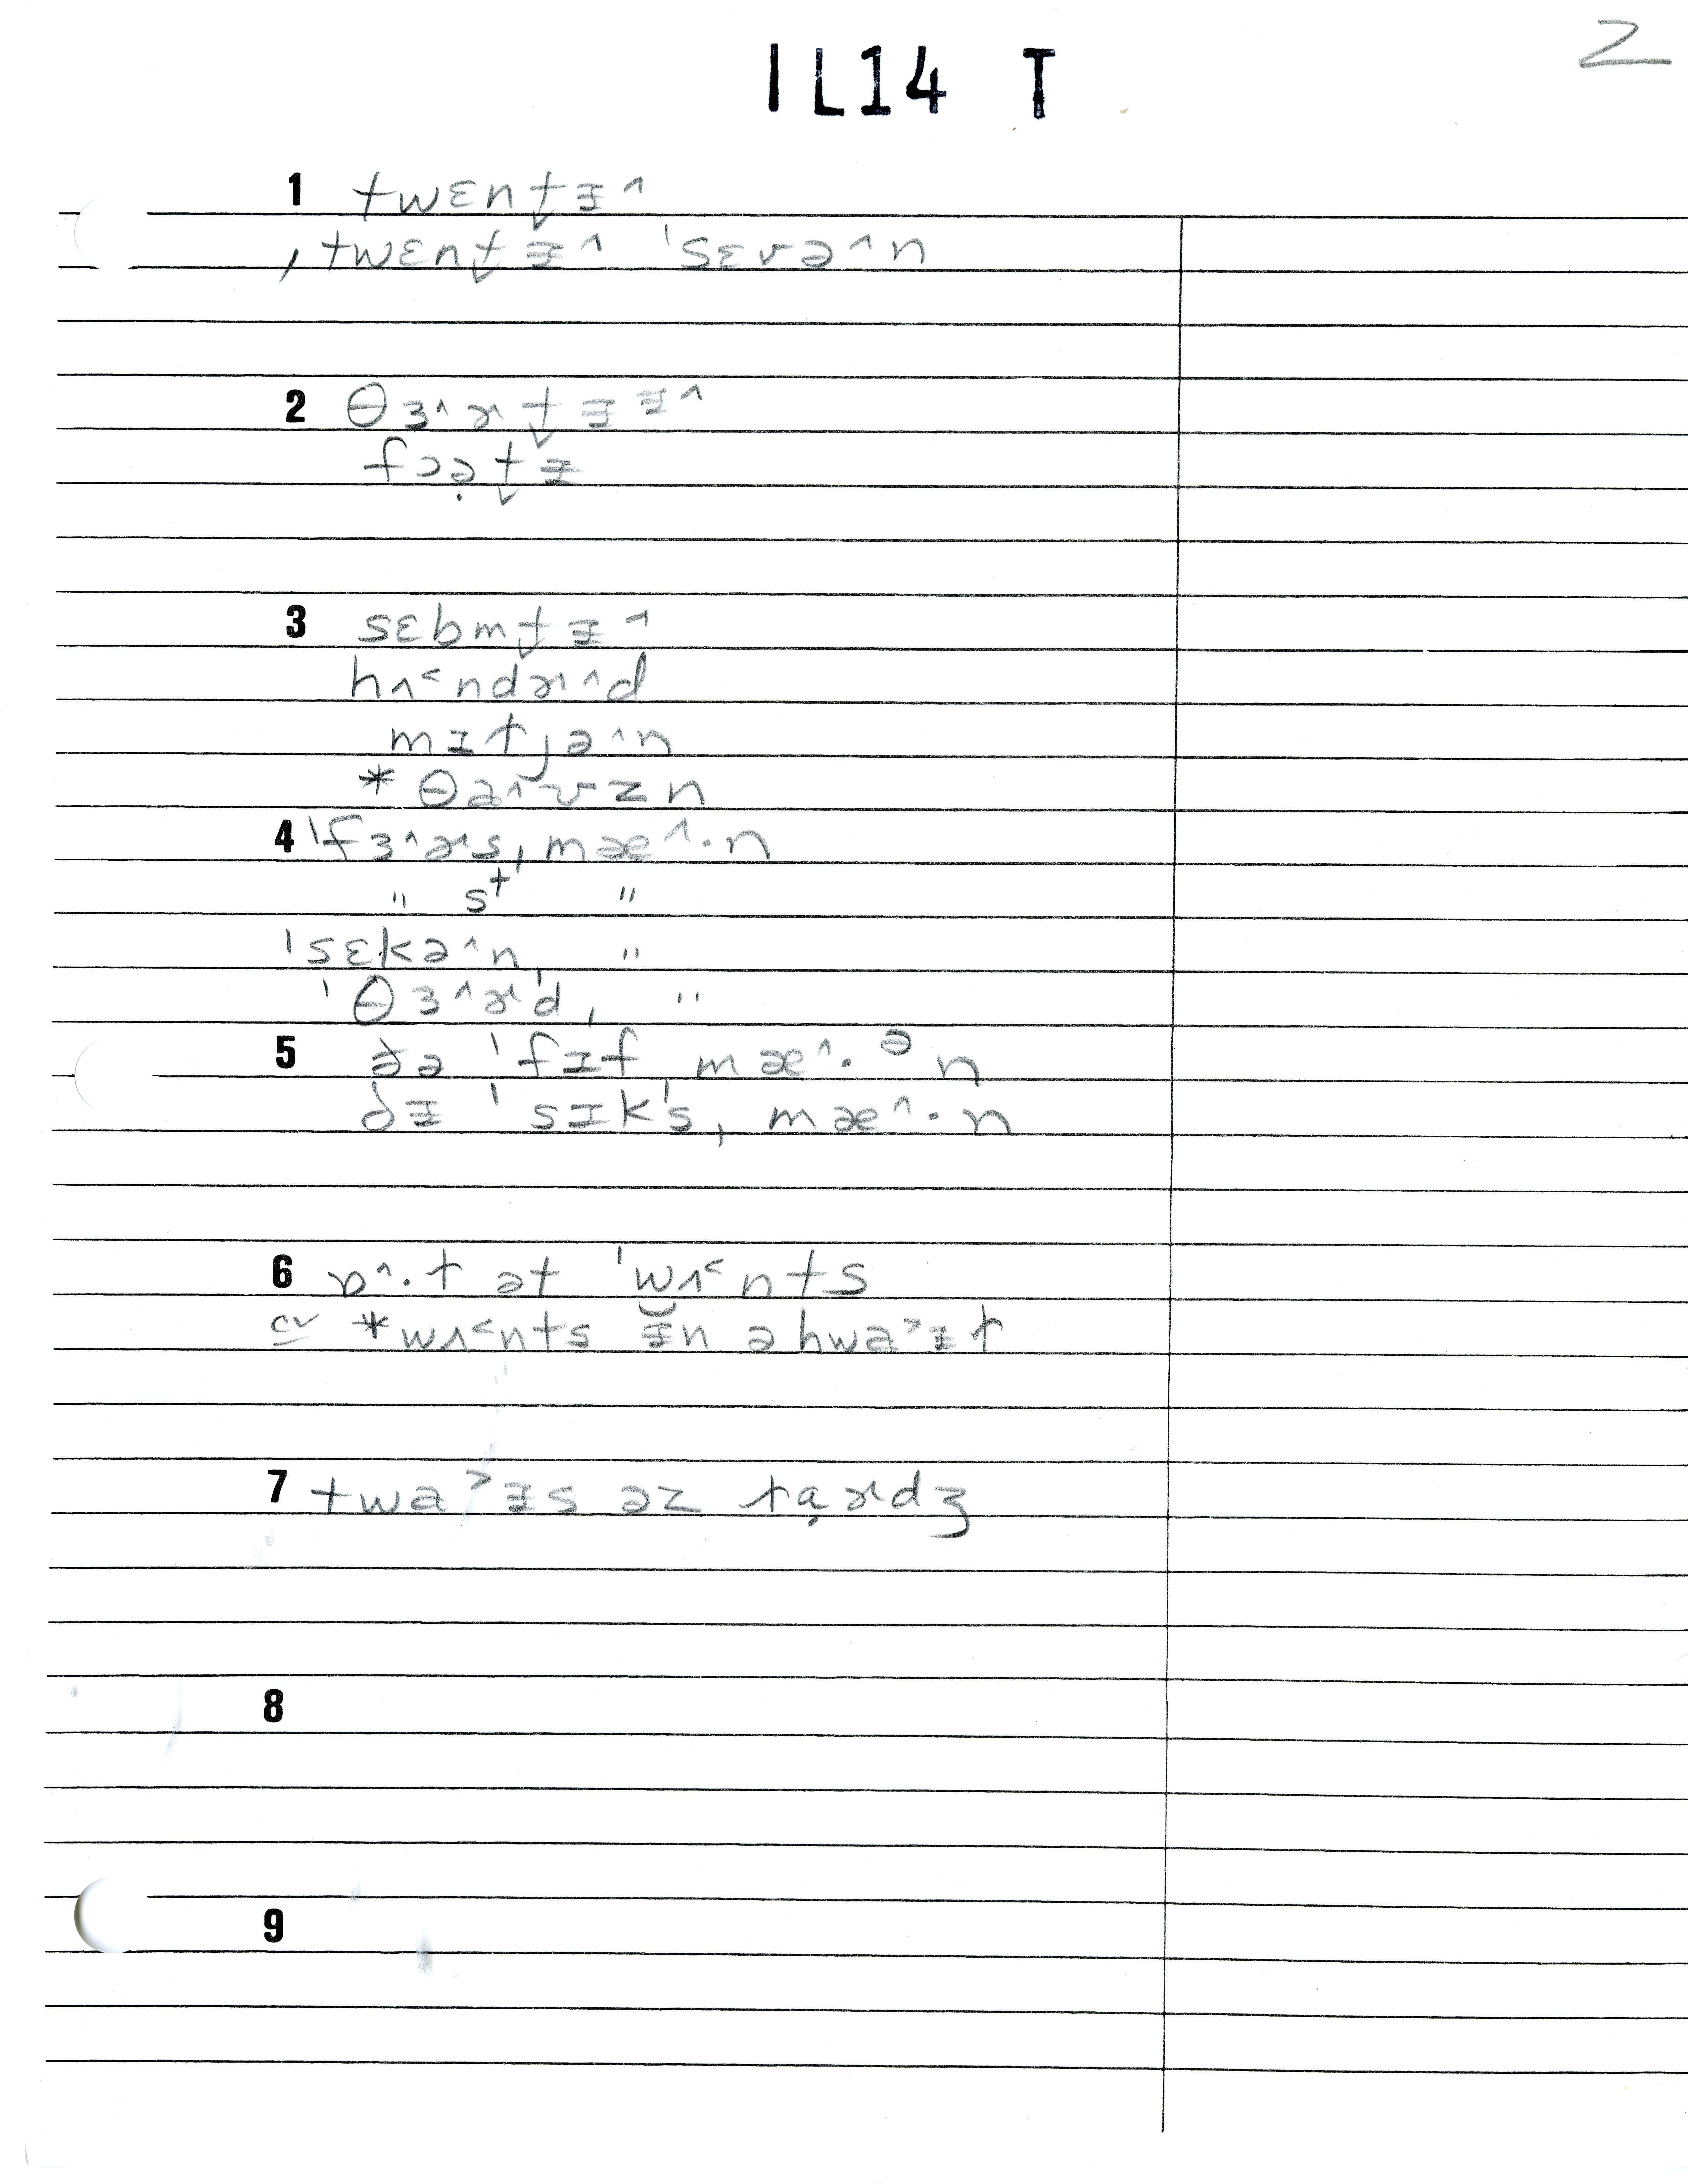 IL14 T
2
1 twɛnt̬ɪ^
ˌtwɛnt̬ɪ^ ˈsɛvə^n
2 θɜ^ɚt̬ɪɪ^
fɔə̣t̬ɪ
3 sɛbmt̬ɪ^
hʌ˂ndɚ^d
mɪɫjə^n
* θa^ʊzn
4 ˈfɜ^ɚsˌmæ^·n
" st "
ˈsɛkə^nˌ "
ˈθɜ^ɚdˌ "
5 ðə ˈfɪf mæ^·ᵊn
ðɪ ˈsɪksˌmæ^·n
6 ɒ^·ɫ ət ˈwʌ˂nts
cv *wʌ˂nts ɪ̆n ə hwa˃ɪɫ
7 twa˃ɪs əz ɫạɚdʒ
8
9